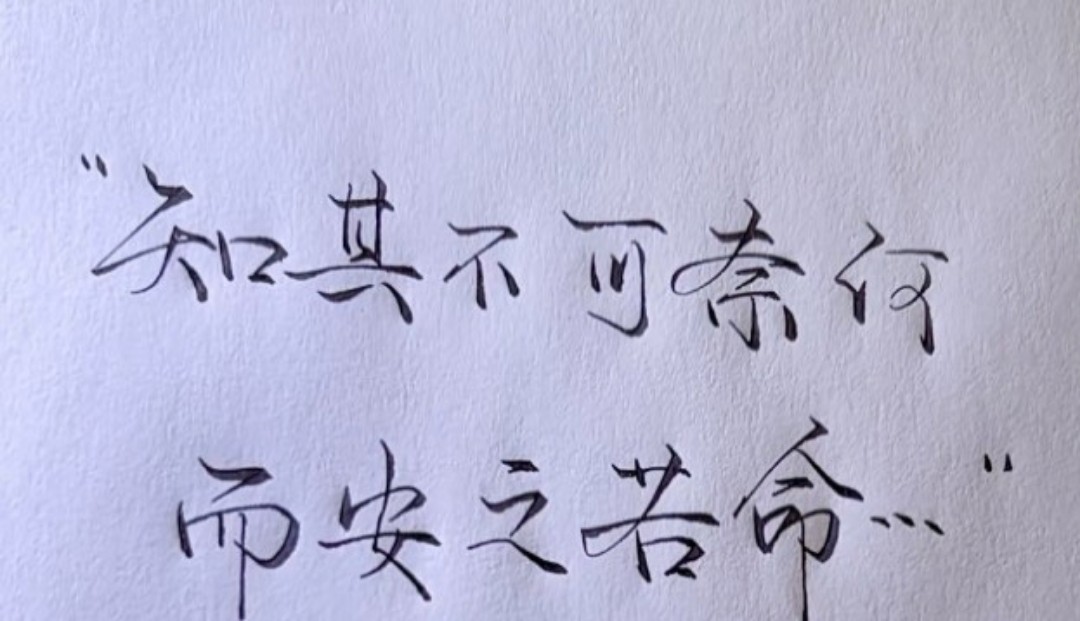 "知其不可奈何
而安之若命…"